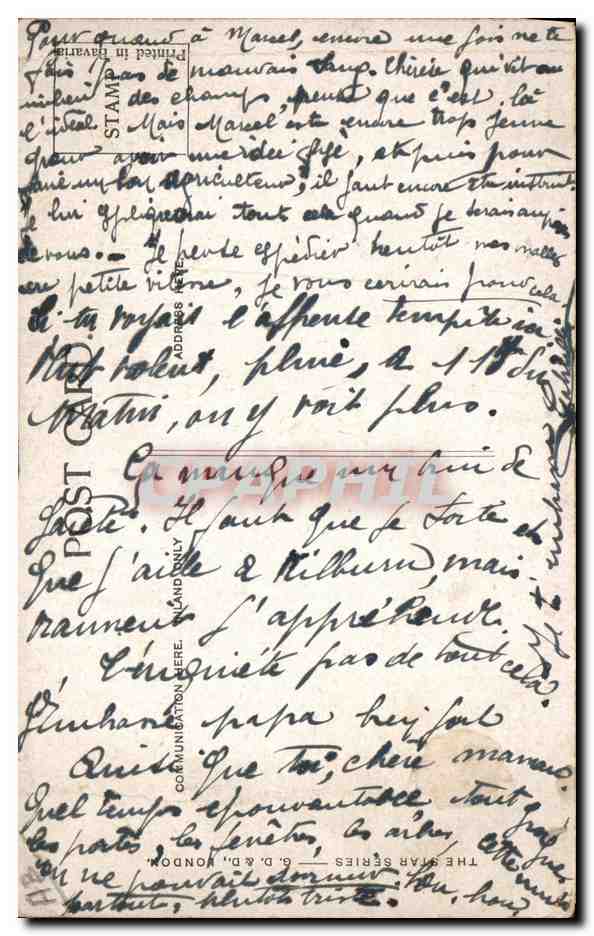 Pour quand à Marcel, encore une fois ne te
fais pas de mauvais sang. Chérie qui vit au
milieu des champs, pense que c'est là
l'idéal. Mais Marcel est encore trop jeune
pour avoir une idée fixe, et puis pour
un bon agriculteur, il faut encore être instruit.
Je lui expliquerai tout cela quand je serai auprès
de vous. - Je pense expédier bientôt mes malles
en petite vitesse, je vous écrirais pour cela
Si tu voyais l'affreuse tempête ici
Vent violent, pluie, à 11h du
matin, on y voit plus.
Ça manque un brin de
gaieté. Il faut que je sorte et
que j'aille à Kilburn, mais
vraiment j'appréhende.
T'inquiète pas de tout cela.
J'embrasse papa bien fort
Ainsi que toi, chère maman.
Quel temps épouvantable tout
les portes, les fenêtres, les arbres, cette nuit
on ne pouvait dormir. hou, hou,
partout, plutôt triste.
Je t'embrasse
POST CARD.
STAMP
Printed in Bavaria
ADDRESS HERE.
INLAND ONLY
COMMUNICATION HERE.
THE STAR SERIES — G. D. & D., LONDON.
CPAPHIL